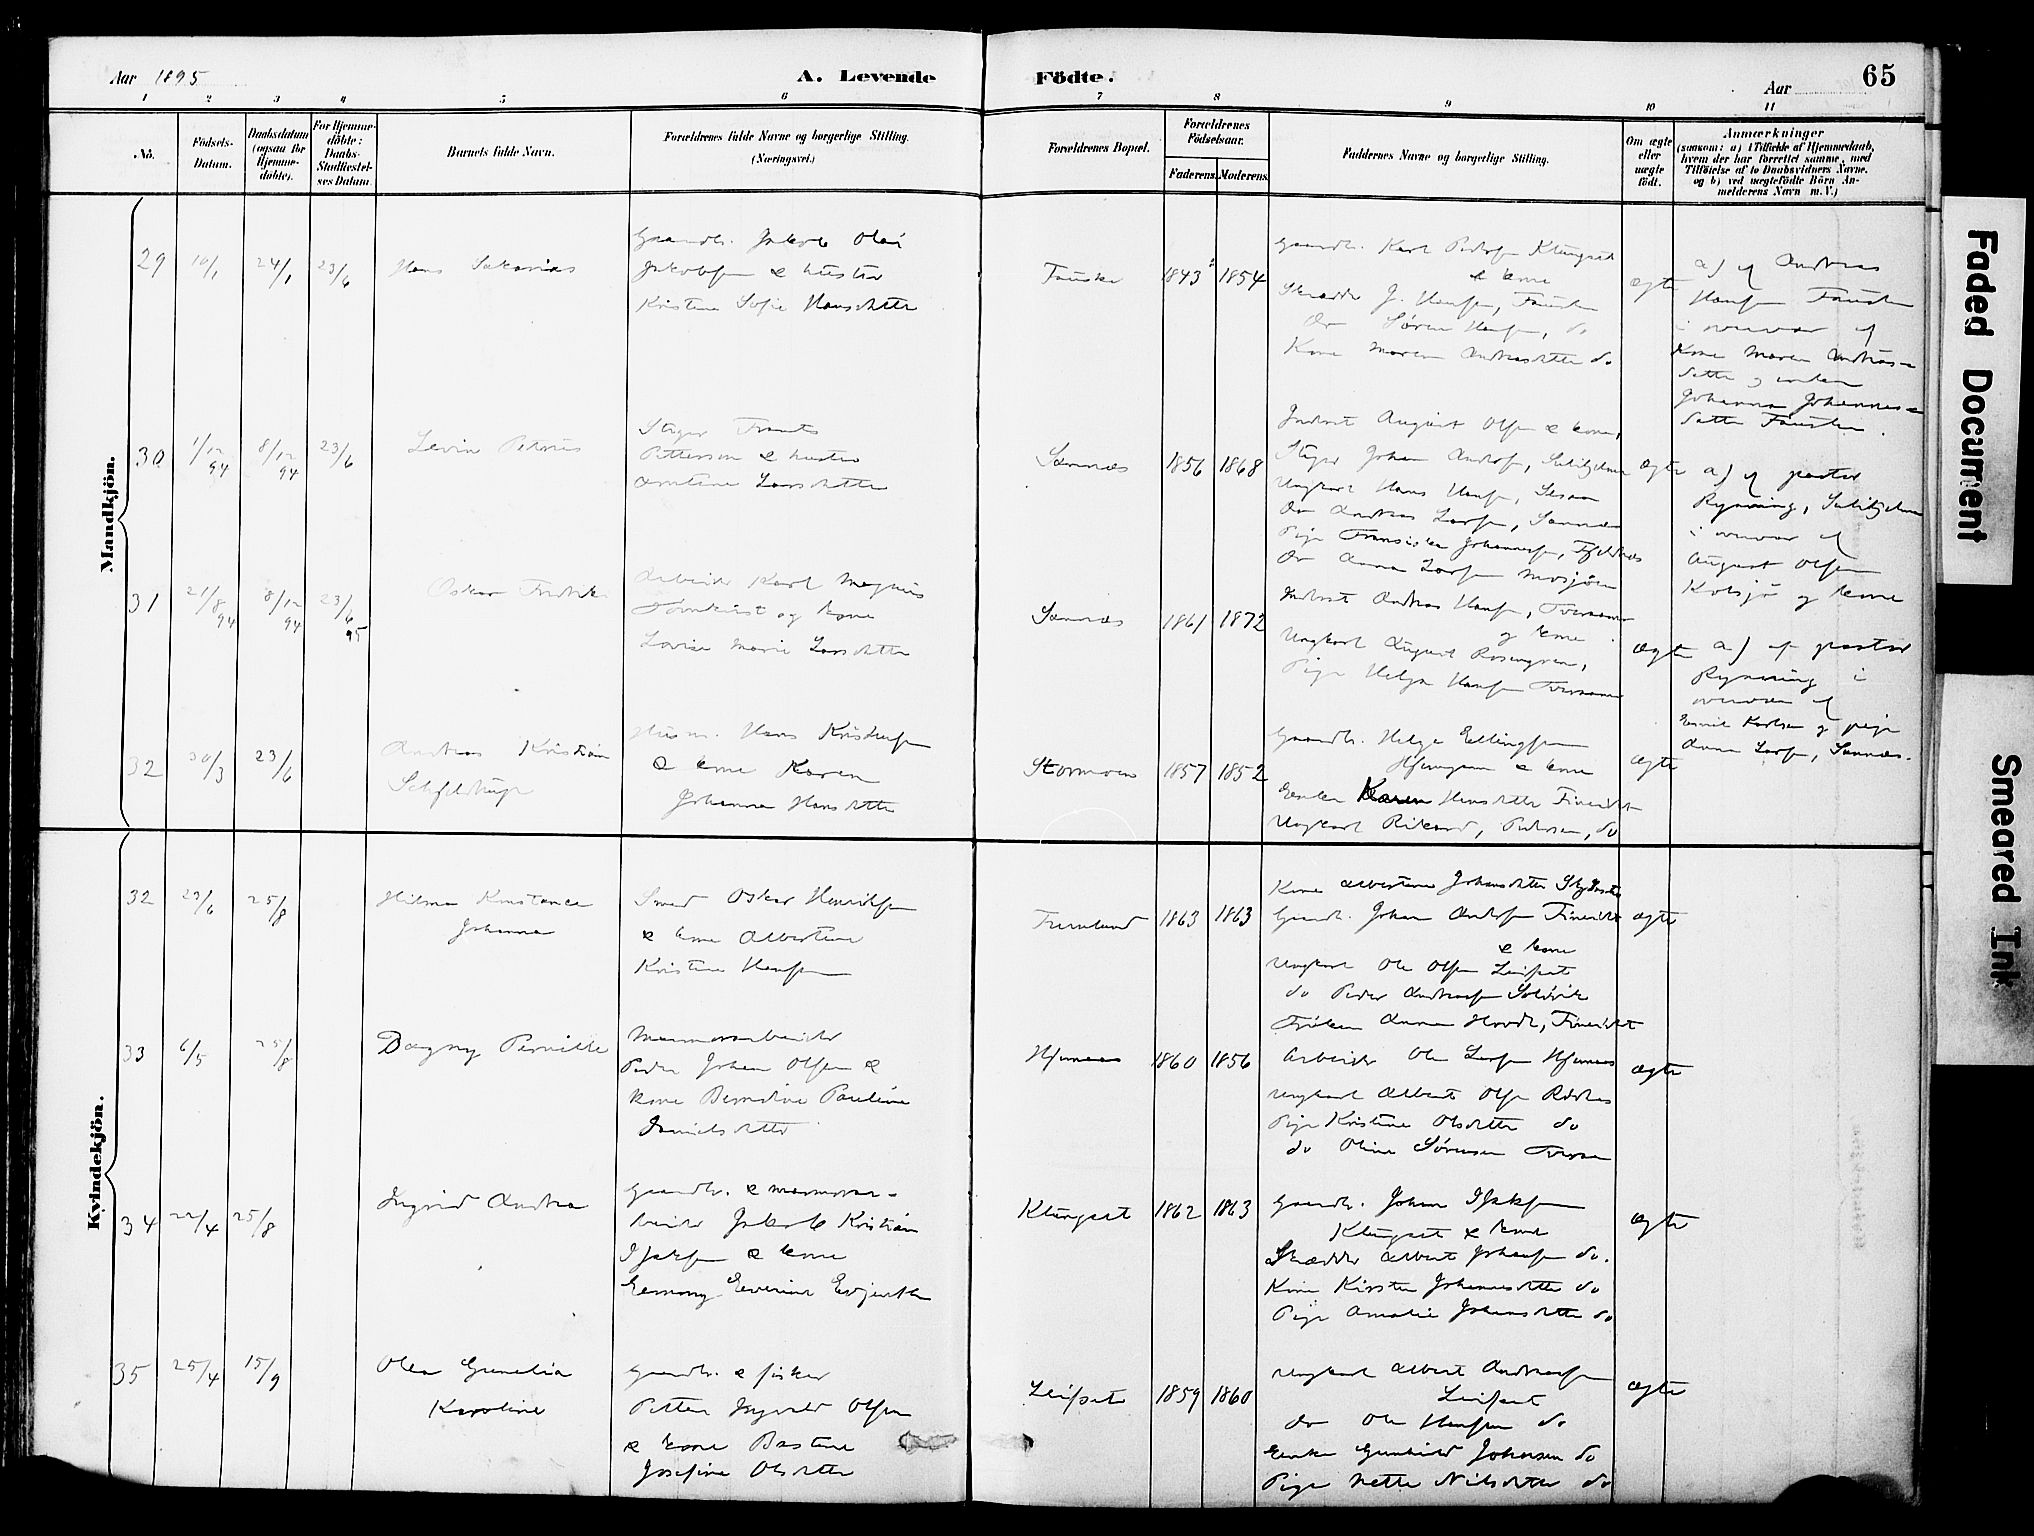 Aar 1895
A. Levende
Födte.
Aar
65
1 2 3 4 5 6 7 8 9 10 11
No.
Födsels-
Datum.
Daabsdatum
(ogsaa for
Hjemme-
döbte).
For Hjemme-
döbte:
Daabs-
Stadfæstel-
ses Datum.
Barnets fulde Navn.
Forældrenes fulde Navne og borgerlige Stilling.
(Næringsvei.)
Forældrenes Bopæl.
Forældrenes
Födselsaar.
Faderens. Moderens.
Faddernes Navne og borgerlige Stilling.
Om ægte
eller
uægte
födt.
Anmærkninger
(saasom: a) i Tilfælde af Hjemmedaab,
hvem der har forrettet samme, med
Tilföielse af to Daabsvidners Navne,
og b) ved uægtefödte Börn An-
melderens Navn m. V.)
Mandkjön.
29 10/1 24/1 23/6
Hans
Gaardb. Jakob Olai
Jakobsen & hustru
Kristine Sofie Hansdatter
Fauske 1843 1854
Gaardb. Karl Peders. Klungset
& kone
Skrædder J. Hansen, Fausken
do Søren Hansen, do
Kone Maren Andreasdatter do
ægte
a) af Andreas
Hansen Fausken
i overvær af
Kone Maren Andreas-
datter og enken
Johanna Johannes-
datter Fausken.
30 1/12 94 8/12 94 23/6
Levin Petrus
Stiger Frants
Pettersen & hustru
Larsdatter
Sannæs 1856 1868
August Olsen & kone,
Stiger Johan Anders.,
Ungkarl Hans Hansen,
do Andreas Larsen, Sannæs
Pige Fransiska Johannesen,
do Anna Larsen Mosjøen
ægte
a) af pastor
Rynning,
i overvær af
August Olsen
og kone
31 21/8 94 8/12 94 23/6 95
Oskar Fredrik
Arbeider Karl Magnus
og kone
Lovise Marie Larsdatter
Sannæs 1861 1872
Andreas Hansen,
og kone
Ungkarl August Rosengren,
Pige Helga Hansen
ægte
a) af pastor
Rynning i
overvær af
Karlsen og pige
Anna Larsen, Sannæs.
32 30/3 23/6
Andreas Kristian
Husm. Hans Kristensen
& kone Karen
Johanna Hansdatter
Stormoen 1857 1852
Gaardb. Helge Ellingsen
& kone
Enken Karen Hansdatter Fineidet
Ungkarl Rikard Pedersen, do
ægte
Kvindekjön.
32 23/6 25/8
Hilma Konstance
Johanna
Smed Oskar Henriksen
& kone Albertine
Kristine Hansen
1863 1863
Kone Albertine Johansdatter
Gaardb. Johan Anders. Fineidet
& kone
Ungkarl Ole Olsen Leifset
do Peder Andreasen
Frøken Anna Hovde, Fineidet
ægte
33 6/5 25/8
Dagny Pernille
Marmorarbeider
Peder Johan Olsen &
kone Berndine Pauline
Danielsdatter
1860 1856
Arbeider Ole Larsen
Ungkarl Albert Olsen
Pige Kristine Olsdatter do
do Oline Sørensen
ægte
34 22/4 25/8
Ingrid Andrea
Gaardb. & marmorar-
beider Jakob Kristian
Isaksen & kone
Everine
Klungset 1862 1863
Gaardb. Johan Isaksen
Klungset & kone
Skrædder Albert Johansen do.
Kone Kirsten Johannesdatter do
Pige Amalie Johansdatter do
ægte
35 25/4 15/9
Olea Gunelia
Karoline
Gaardb. & fisker
Petter Olsen
& kone Bastine
Josefine Olsdatter
Leifset 1859 1860
Ungkarl Albert Andreasen
Leifset
do Ole Hansen do
Enke Gunhild Johansen do
Pige Nette Nilsdatter do
ægte
Faded Document
Smeared Ink